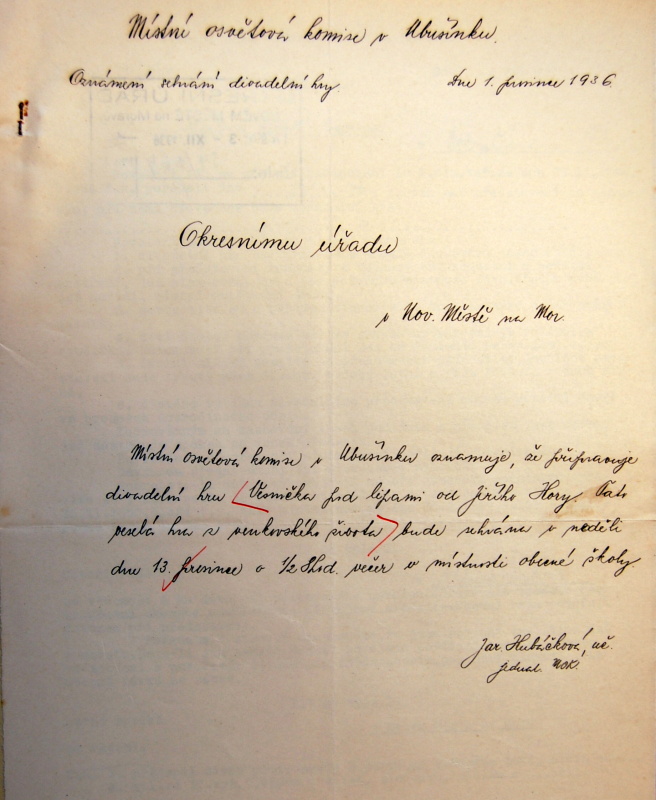 Místní osvětová komise v Ubušínku.
Oznámení sehrání divadelní hry.
Dne 1. prosince 1936.
Okresnímu úřadu
v Nov. Městě na Mor.
Místní osvětová komise v Ubušínku oznamuje, že připravuje
divadelní hru Vesnička pod lipami od Jiřího Hory. Tato
veselá hra z venkovského života bude sehrána v neděli
dne 13. prosince o 1/2 8 hod. večer v místnosti obecné školy.
Jar. Hubáčková, uč.
jednat. MOK.